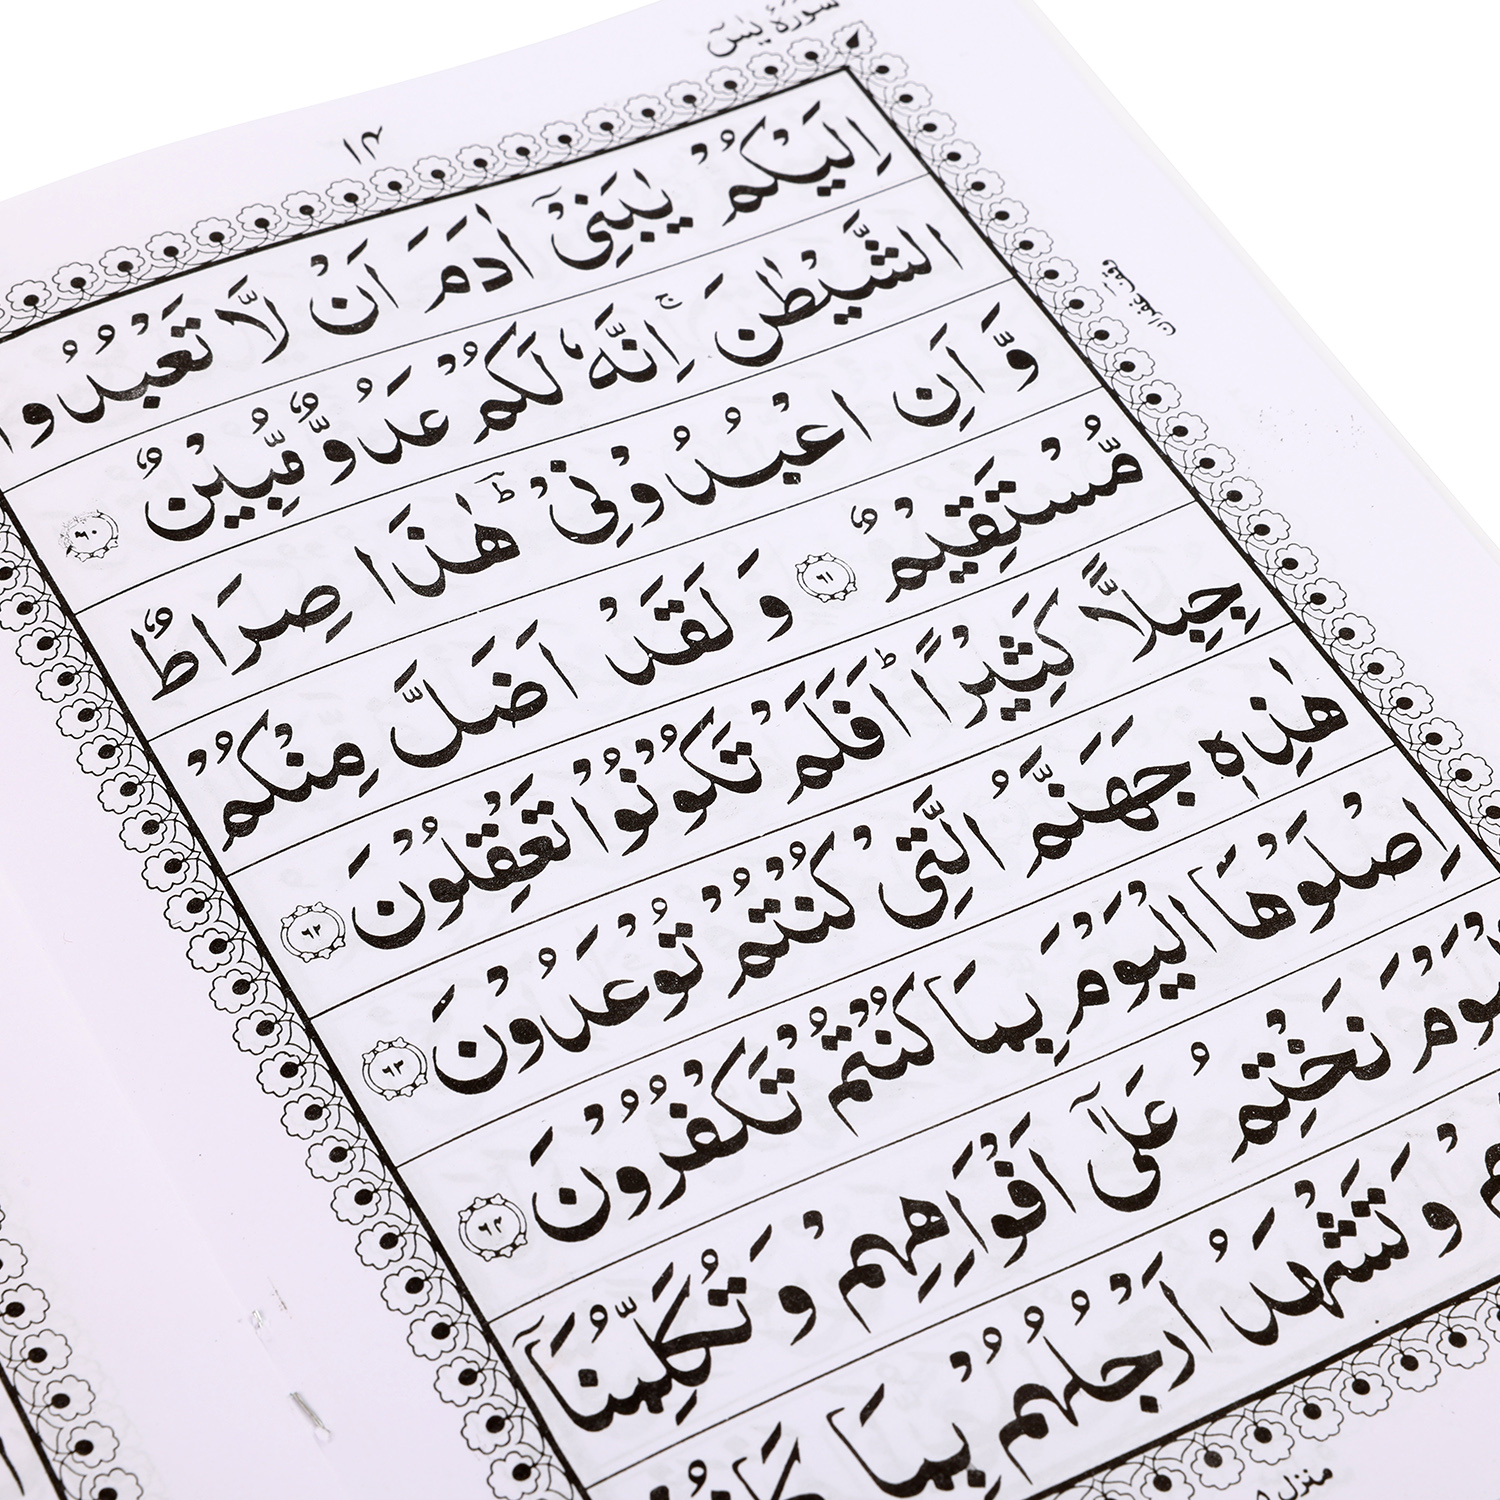 سورة يس
١٤
اِلَيْكُمْ يٰبَنِيْٓ اٰدَمَ اَنْ لَّا تَعْبُدُوا
الشَّيْطٰنَ ۚ اِنَّهٗ لَكُمْ عَدُوٌّ مُّبِيْنٌ ۶۰
وَّ اَنِ اعْبُدُوْنِيْ ؕ هٰذَا صِرَاطٌ
مُّسْتَقِيْمٌ ۶۱ وَ لَقَدْ اَضَلَّ مِنْكُمْ
جِبِلًّا كَثِيْرًا ؕ اَفَلَمْ تَكُوْنُوْا تَعْقِلُوْنَ ۶۲
هٰذِهٖ جَهَنَّمُ الَّتِيْ كُنْتُمْ تُوْعَدُوْنَ ۶۳
اِصْلَوْهَا الْيَوْمَ بِمَا كُنْتُمْ تَكْفُرُوْنَ ۶۴
نَخْتِمُ عَلٰٓى اَفْوَاهِهِمْ وَ تُكَلِّمُنَآ
وَ تَشْهَدُ اَرْجُلُهُمْ بِمَا
منزل